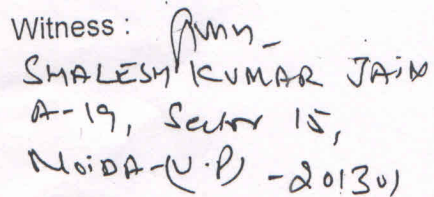 Witness :
SHALESH KUMAR JAIN
A-19, Sector 15,
NOIDA-(U.P) - 201301